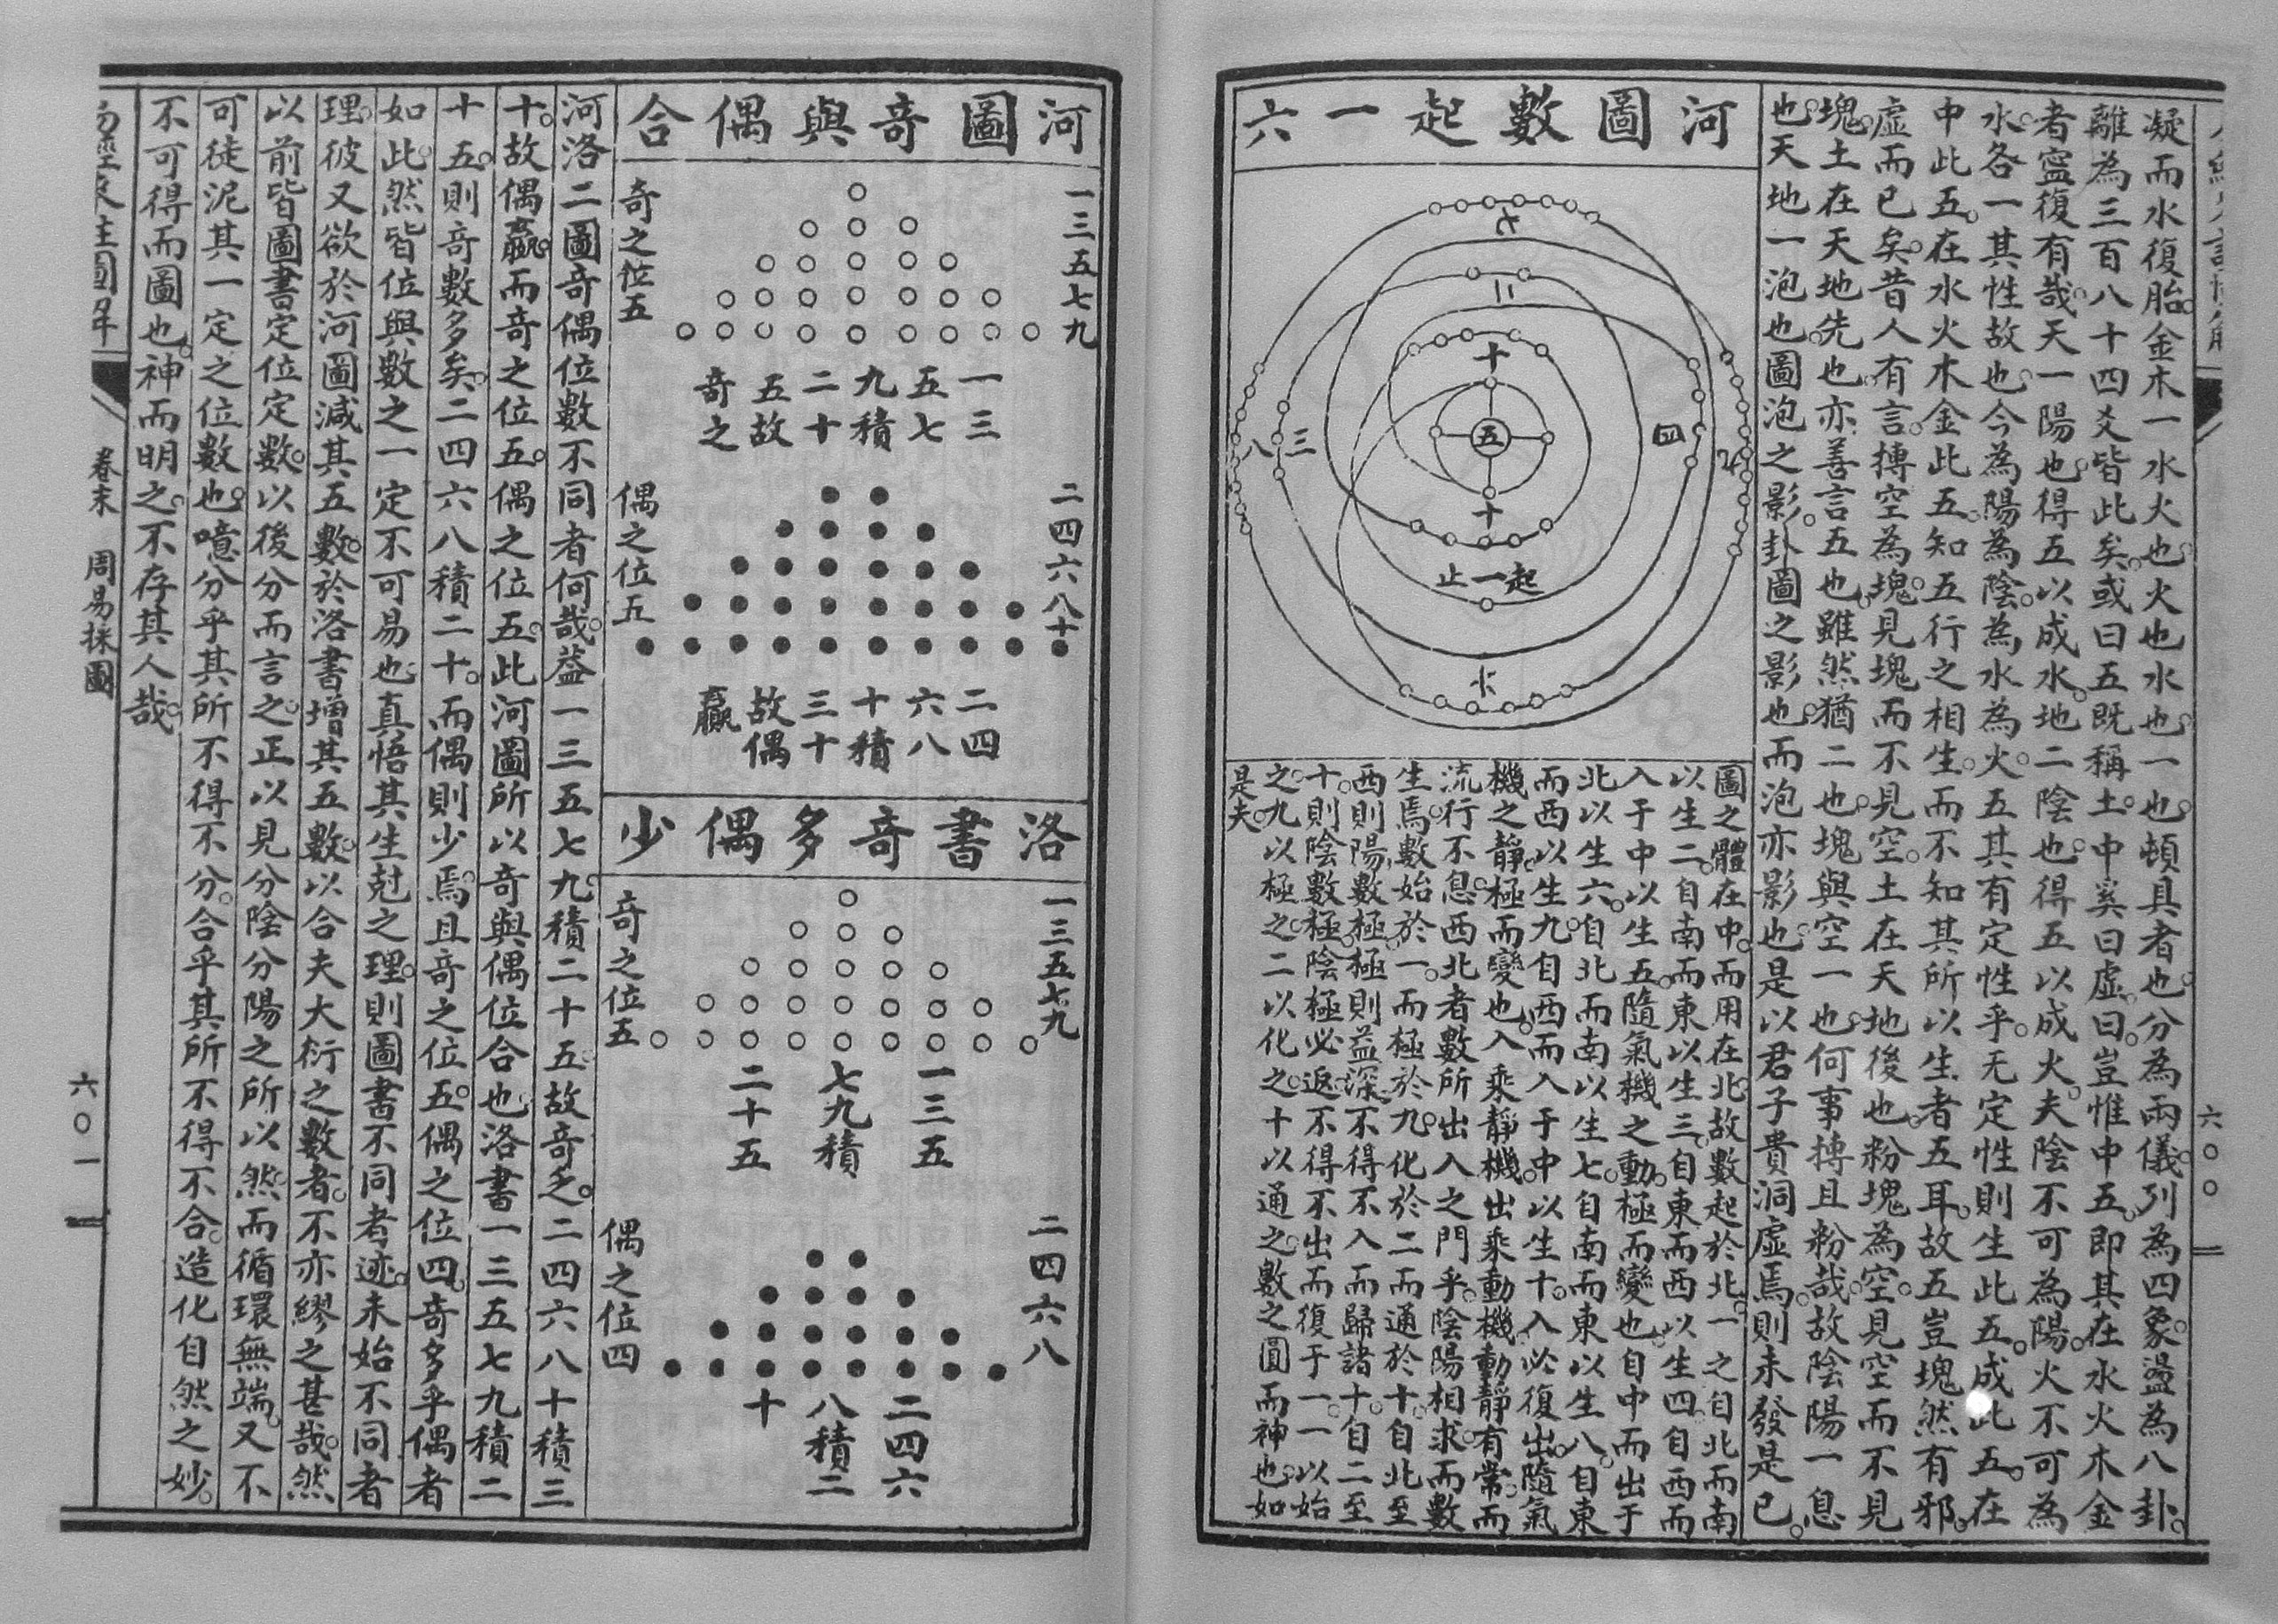 凝而水復胎。金木一水火也。火也水也。一也。頓具者也。分為兩儀。列為四象。盪為八卦。
離為三百八十四爻。皆此矣。或曰五既稱土。中奚曰虛。曰。豈惟中五。即其在水火木金
者寧復有哉。天一陽也。得五以成水。地二陰也。得五以成火。夫陰不可為陽。火不可為
水。各一其性故也。今為陽為陰。為水為火。五其有定性乎。无定性則生此五。成此五。在
中此五。在水火木金此五。知五行之相生。而不知其所以生者五耳。故五豈塊然有邪。
虛而已矣。昔人有言。摶空為塊。見塊而不見空。土在天地後也。粉塊為空。見空而不見
塊。土在天地先也。亦善言五也。雖然猶二也。塊與空一也。何事摶且粉哉。故陰陽一息
也。天地一泡也。圖泡之影。卦圖之影也。而泡亦影也。是以君子貴洞虛焉。則未發是已。
河圖數起一六
七
二
十
五
八
三
四
九
十
起一止
六
圖之體在中。而用在北。故數起於北。一之自北而南
以生二。自南而東以生三。自東而西以生四。自西而
入于中以生五。隨氣機之動。極而變也。自中而出于
北以生六。自北而南以生七。自南而東以生八。自東
而西以生九。自西而入于中以生十。入必復出。隨氣
機之靜。極而變也。入乘靜機。出乘動機。動靜有常。而
流行不息。西北者數所出入之門乎。陰陽相求。而數
生焉。數始於一。而極於九。化於二而通於十。自北至
西則陽。數極極則益深。不得不入而歸諸十。自二至
十。則陰數極。陰極必返。不得不出而復于一。一以始
之。九以極之。二以化之。十以通之。數之圓而神也。如
是夫。
六〇〇
河圖奇與偶合
一三五七九
奇之位五
一三
五七
九積
二十
五故
奇之
二四六八十
偶之位五
二四
六八
十積
三十
故偶
贏
洛書奇多偶少
一三五七九
奇之位五
一三五
七九積
二十五
二四六八
偶之位四
二四六
八積二
十
河洛二圖奇偶位數不同者何哉。蓋一三五七九。積二十五。故奇乏。二四六八十積三
十。故偶贏。而奇之位五。偶之位五。此河圖所以奇與偶位合也。洛書一三五七九積二
十五。則奇數多矣。二四六八積二十。而偶則少焉。且奇之位五。偶之位四。奇多乎偶者
如此。然皆位與數之一定不可易也。真悟其生尅之理。則圖書不同者迹。未始不同者
理。彼又欲於河圖減其五數。於洛書增其五數。以合夫大衍之數者。不亦繆之甚哉。然
以前皆圖書定位定數。以後分而言之。正以見分陰分陽之所以然。而循環無端。又不
可徒泥其一定之位數也。噫分乎其所不得不分。合乎其所不得不合。造化自然之妙。
不可得而圖也。神而明之。不存其人哉。
卷末
周易採圖
六〇一